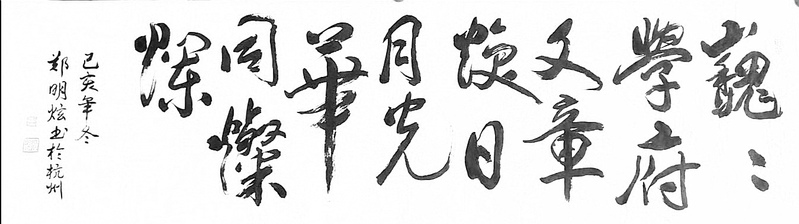 巍〻
學府
文章
焕日
月光
華
同燦
爛
己亥年冬
郑明炫书於杭州